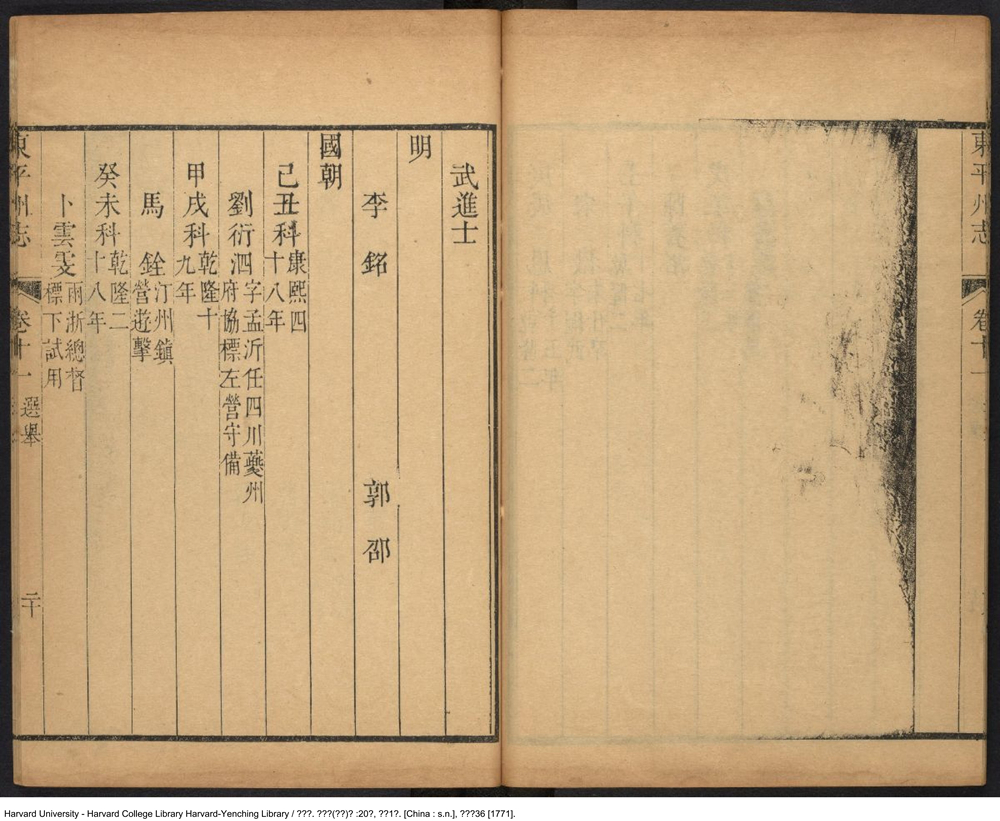 東平州志
卷十一
武進士
明
李銘 郭邵
國朝
己丑科康熙四十八年
劉衍泗字孟沂任四川夔州府協標左營守備
甲戌科乾隆十九年
馬銓汀州鎮營遊擊
癸未科乾隆二十八年
卜雲雯兩浙總督標下試用
東平州志 卷十一 選舉 二十
Harvard University - Harvard College Library Harvard-Yenching Library / ???. ???(??)? :20?, ??1?. [China : s.n.], ???36 [1771].